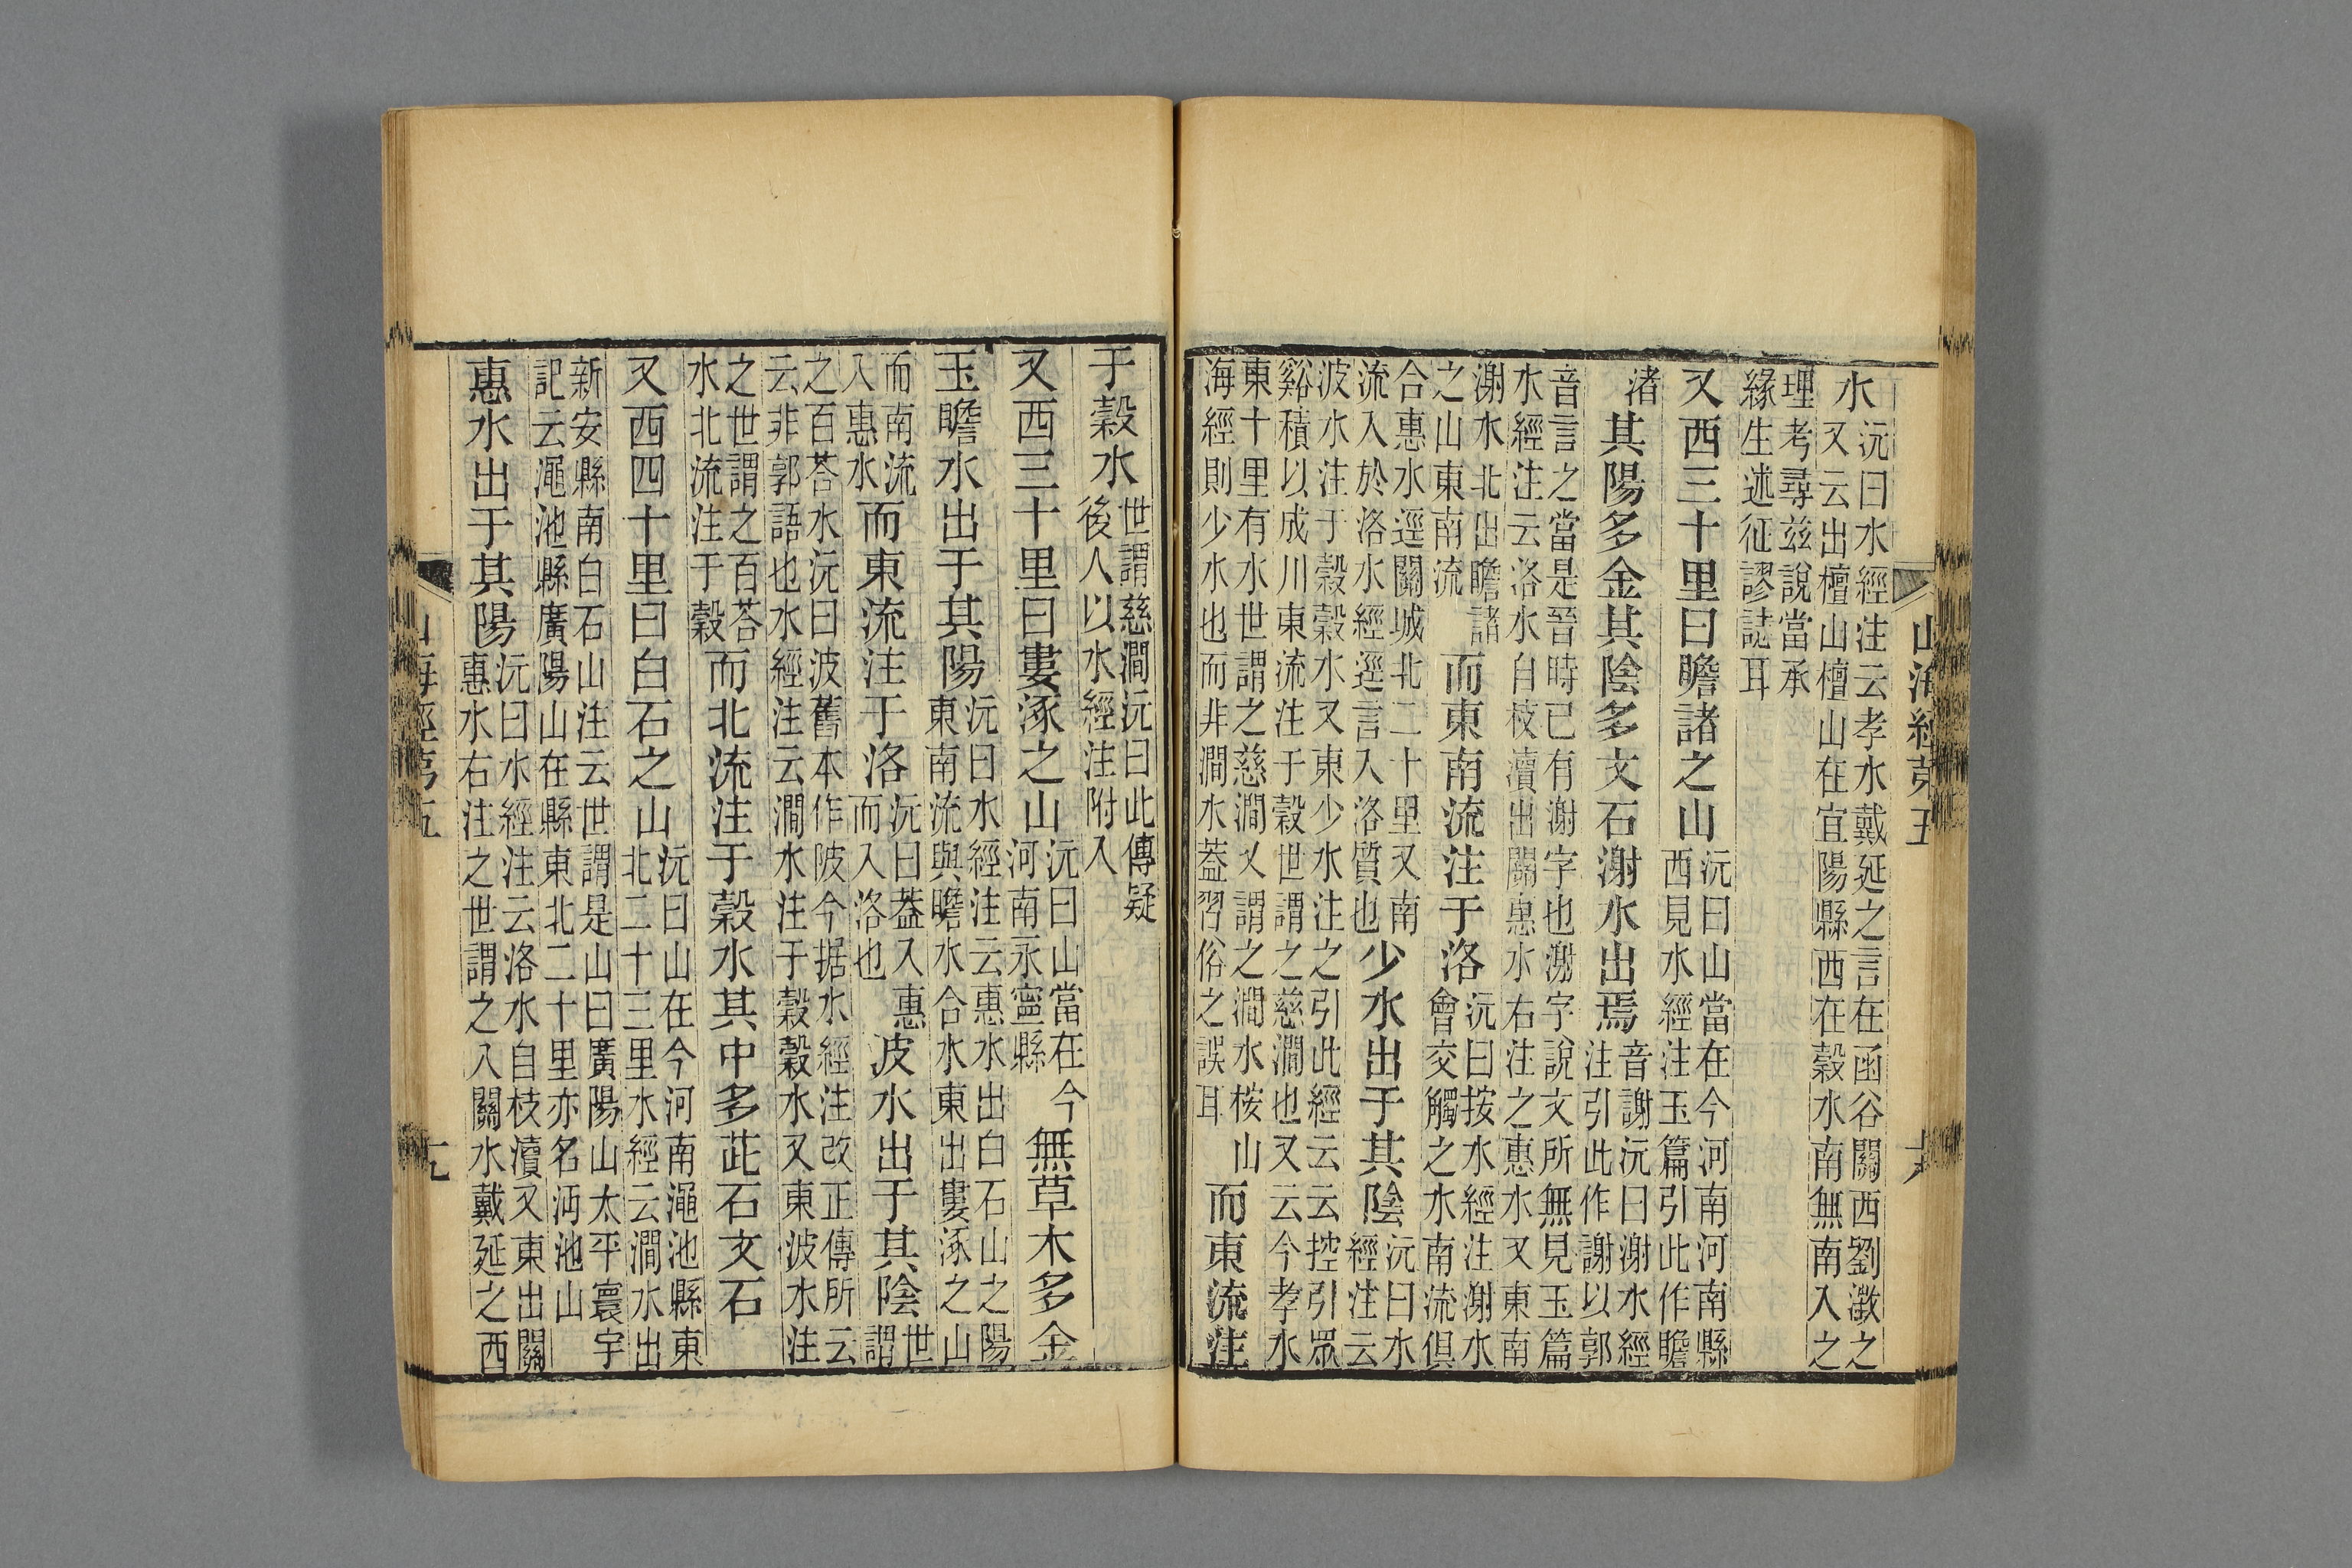 山海經第五
水
沅曰水經注云孝水戴延之言在函谷關西劉澂之
又云出檀山檀山在宜陽縣西在穀水南無南入之
理考尋兹說當承
緣生述征謬誌耳
又西三十里曰瞻諸之山
沅曰山當在今河南河南縣
西見水經注玉篇引此作瞻
渚
其陽多金其陰多文石㴬水出焉
音謝沅曰㴬水經
注引此作謝以郭
音言之當是晉時已有㴬字也㴬字說文所無見玉篇
水經注云洛水自枝瀆出關惠水右注之惠水又東南
㴬水北出瞻諸
之山東南流
而東南流注于洛
沅曰按水經注㴬水
會交觸之水南流俱
合惠水逕關城北二十里又南
流入於洛水經逕言入洛質也
少水出于其陰
沅曰水
經注云
波水注于穀穀水又東少水注之引此經云云控引眾
谿積以成川東流注于穀世謂之慈澗也又云今孝水
東十里有水世謂之慈澗又謂之澗水桉山
海經則少水也而非澗水蓋習俗之誤耳
而東流注
于穀水
世謂慈澗沅曰此傳疑
後人以水經注附入
又西三十里曰婁涿之山
沅曰山當在今
河南永寧縣
無草木多金
玉瞻水出于其陽
沅曰水經注云惠水出白石山之陽
東南流與瞻水合水東出婁涿之山
而南流
入惠水
而東流注于洛
沅曰蓋入惠
而入洛也
波水出于其陰
世
謂
之百荅水沅曰波舊本作陂今据水經注改正傳所云
云非郭語也水經注云澗水注于穀穀水又東波水注
之世謂之百荅
水北流注于穀
而北流注于穀水其中多茈石文石
又西四十里曰白石之山
沅曰山在今河南澠池縣東
北二十三里水經云澗水出
新安縣南白石山注云世謂是山曰廣陽山太平寰宇
記云澠池縣廣陽山在縣東北二十里亦名沔池山
惠水出于其陽
沅曰水經注云洛水自枝瀆又東出關
惠水右注之世謂之入關水戴延之西
山海經第五